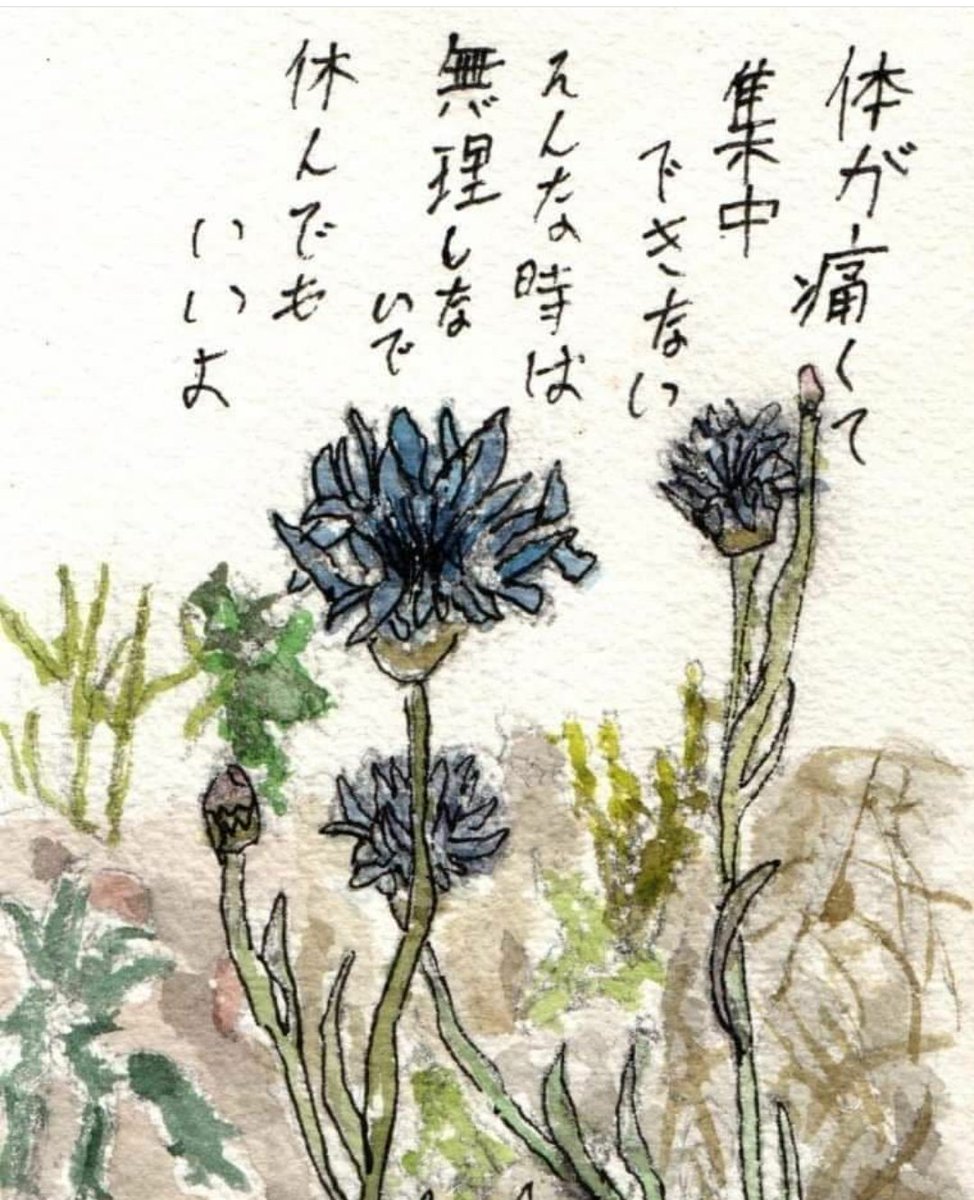 体が痛くて
集中
できない
そんな時は
無理しな
いで
休んでも
いいよ